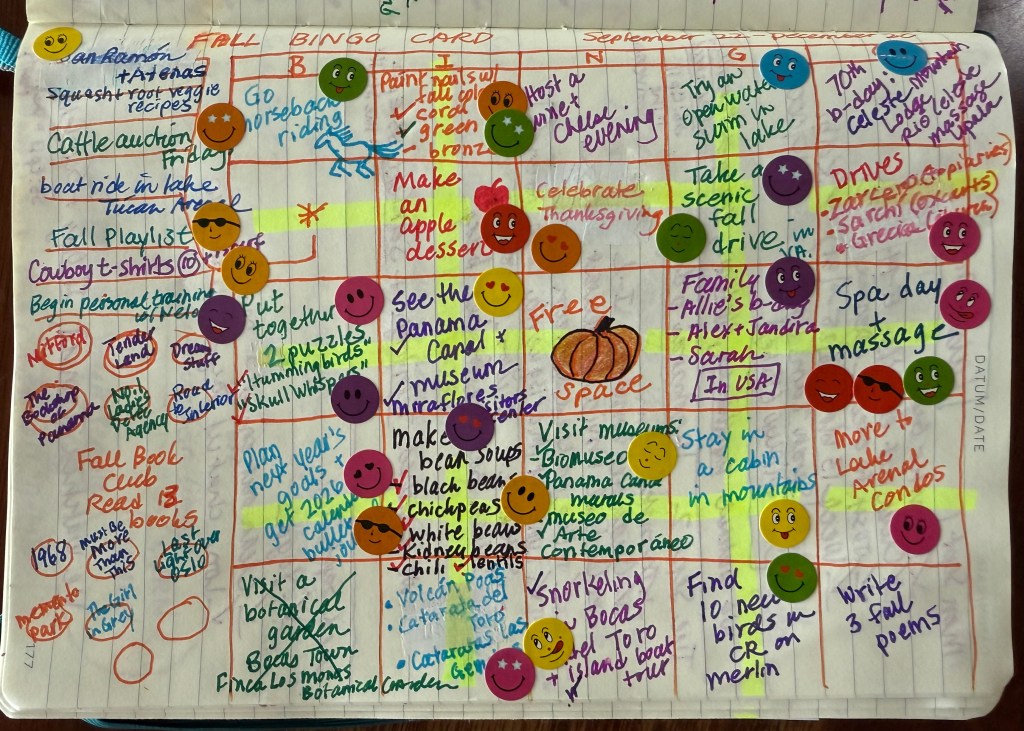 FALL BINGO CARD
September 22-December 20
B
I
N
G
San Ramón
+ Atenas
Squash + root veggie
recipes
Cattle auction
Friday
boat ride in lake
Fall Playlist
Cowboy t-shirts (10)
Begin personal training
w/ Neto
Tender
Land
Dream
Staff
The
Bookshop
of
Panama
No. 1
Ladies
Detec
Agency
Road
to
Interior
Fall Book
Club
Read 12
books
1968
Must Be
More
Than
This
Last
Light over
Oslo
Memento
Park
The Girl
in Grey
Go
horseback
riding
Paint nails w/
fall colo
✓ coral
✓ green
- bronz
Host a
wine +
cheese
evening
Try an
open water
swim in
lake
70th
b-day:
Celeste Mountain
Lodge
Rio Celeste
massage
Upala
*
Make
an
apple
dessert
Celebrate
Thanksgiving
Take a
scenic
fall
drive in
VA.
Drives
• Zarcero (topiaries)
• Sarchi (oxcarts)
• Grecia (church)
Put
together
2 puzzles
"Hummingbirds"
"Skull Whispers"
See the
Panama
✓ Canal *
✓ museum
Miraflores
Visitors
Center
Free
Space
Family
- Allie's b-day
- Alex + Jandira
- Sarah
In USA
Spa day
+
massage
Plan
next year's
goals +
get 2026
calendar
bullet
jou
make
bean soups
✓ black bean
✓ chickpeas
✓ white bean
✓ Kidney beans
✓ chili ✓ lentils
Visit museums:
✓ Biomuseo
✓ Panama Canal
murals
✓ museo de
Arte
Contemporáneo
Stay in
a cabin
in mountains
Move to
Lake
Arenal
Condos
Visit a
botanical
garden
Bocas Town
Finca Los Monos
Botanical Garden
• Volcán Poas
• Catarata del
Toro
• Cataratas Las
Gem
✓ Snorkeling
✓ Bocas
del Toro
+ island boat
tour
Find
10 new
birds in
CR on
merlin
Write
3 fall
poems
DATUM/DATE
177